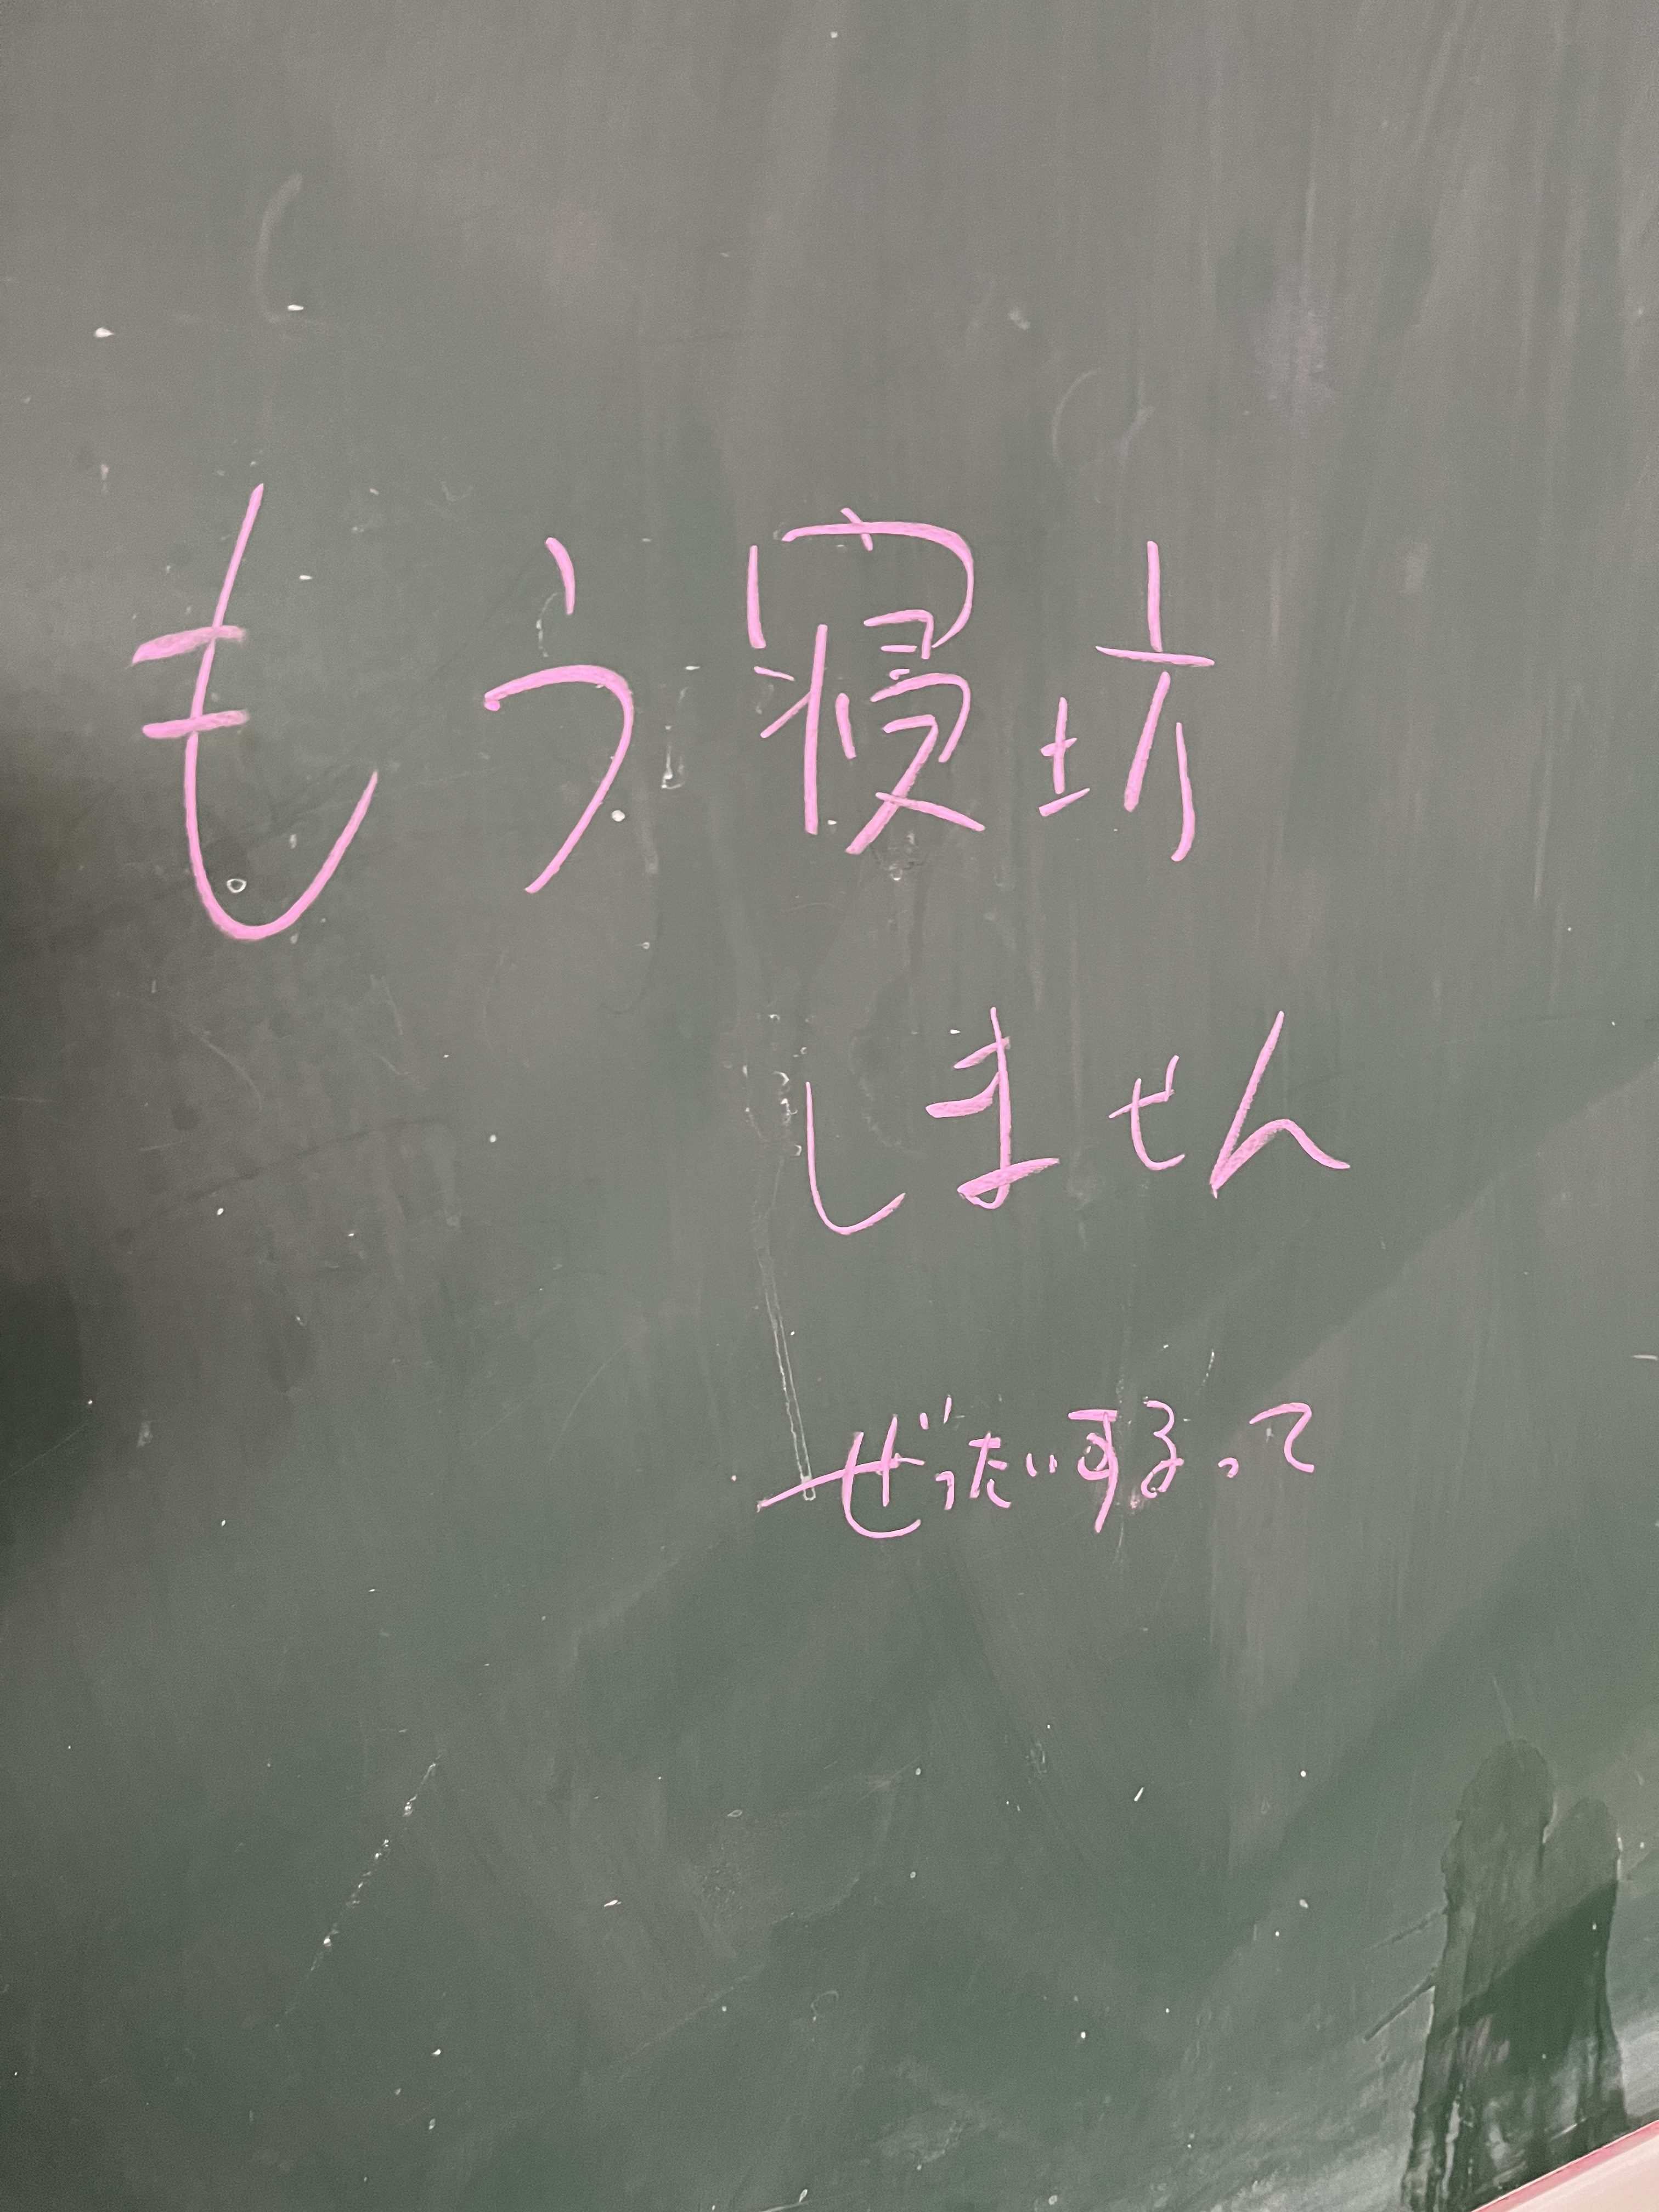 もう寝坊
しません
ぜったいするって